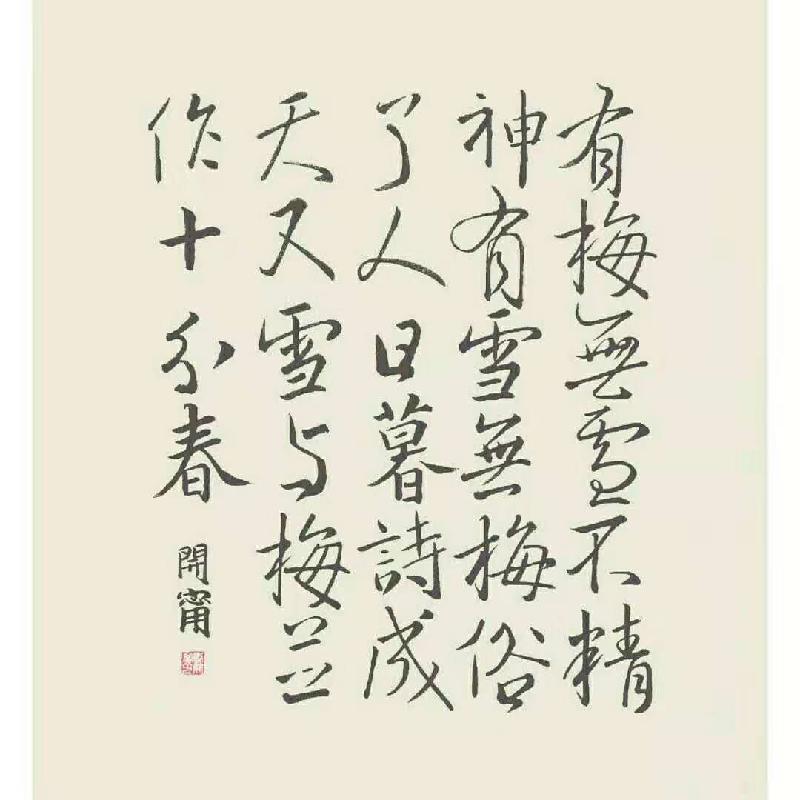 有梅無雪不精
神有雪無梅俗
了人日暮詩成
天又雪与梅並
作十分春
開甯